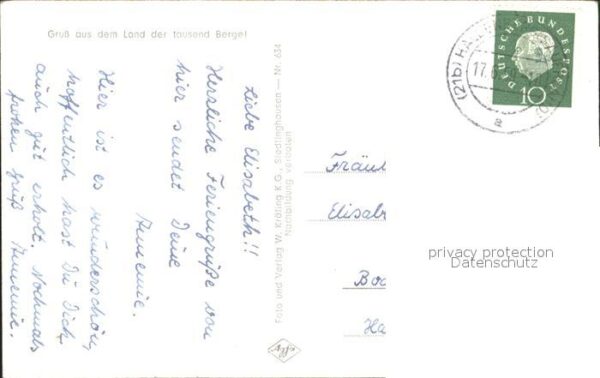 Gruß aus dem Land der tausend Berge!
Liebe Elisabeth!!
Herzliche Feriengrüße von
hier sendet Deine
Annemie.
Hier ist es wunderschön,
hoffentlich hast Du Dich
auch gut erholt. Nochmals
frohen Gruß Annemie.
Foto und Verlag W. Kröling K G., Siedlinghausen — Nr. 634
Nachbildung verboten
Agfa
DEUTSCHE BUNDESPOST
10
(21b) HA
17.
a
Fräul
Elisab
Bo
Ha
privacy protection
Datenschutz